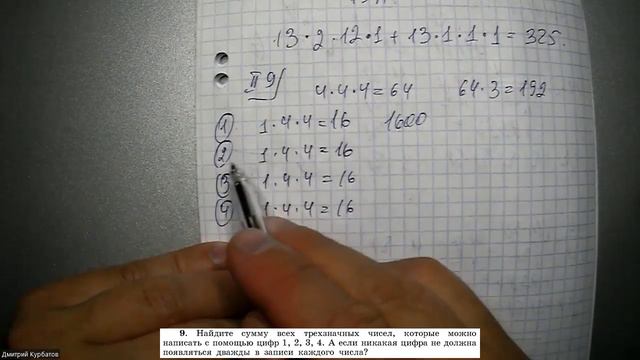 13·2·12·1 + 13·1·1·1 = 325.
II 9
4·4·4 = 64
64·3 = 192
1 1·4·4 = 16 1600
2 1·4·4 = 16
3 1·4·4 = 16
4 1·4·4 = 16
9. Найдите сумму всех трехзначных чисел, которые можно
написать с помощью цифр 1, 2, 3, 4. А если никакая цифра не должна
появляться дважды в записи каждого числа?
Дмитрий Курбатов